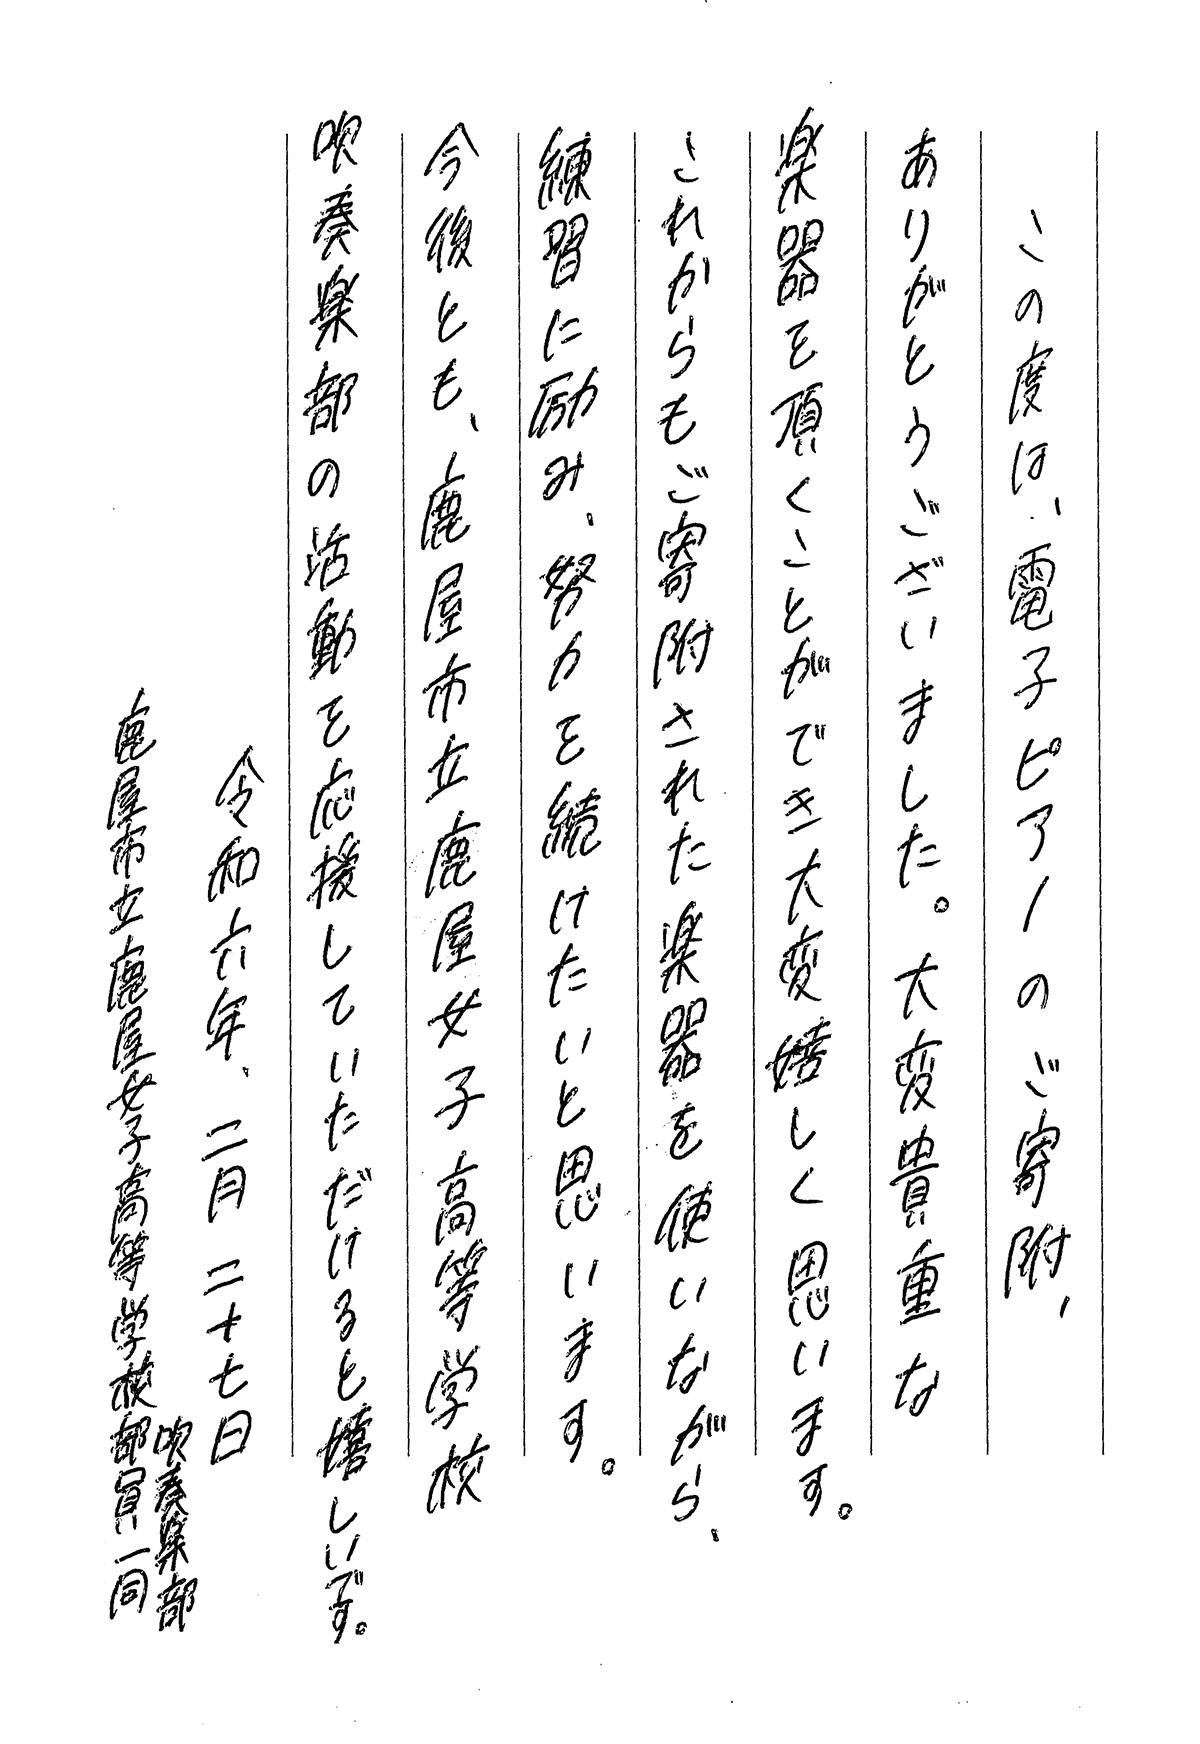 この度は、電子ピアノのご寄附、
ありがとうございました。大変貴重な
楽器を頂くことができ大変嬉しく思います。
これからもご寄附された楽器を使いながら、
練習に励み、努力を続けたいと思います。
今後とも、鹿屋市立鹿屋女子高等学校
吹奏楽部の活動を応援していただけると嬉しいです。
令和六年、二月二十七日
鹿屋市立鹿屋女子高等学校
吹奏楽部
部員一同